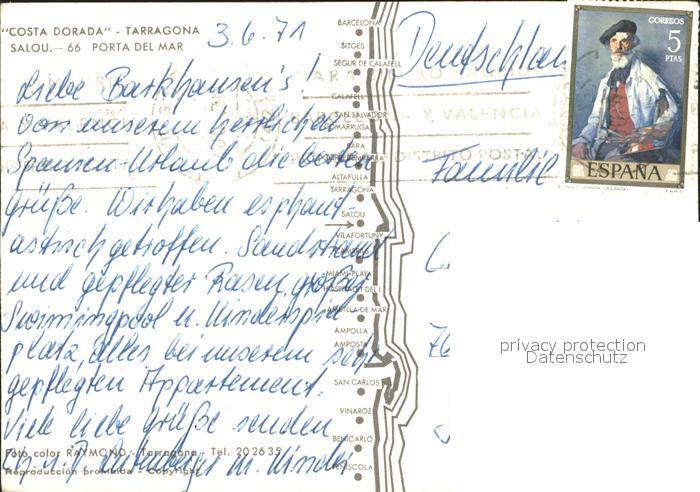 "COSTA DORADA" - TARRAGONA
SALOU.— 66 PORTA DEL MAR
3.6.71
Liebe Barkhausen's!
von unserem herrlichen
Spanien-Urlaub die besten
Grüße. Wir haben es phant-
astisch getroffen. Sandstrand
und gepflegter Rasen, großer
Swimmingpool u. Kinderspiel
platz, alles bei unserem sehr
gepflegten Appartement.
Viele liebe Grüße senden
m. Kinder
Foto color RAYMOND - Tarragona - Tel. 202635
Reproducción prohibida - Copyright
BARCELONA
SITGES
SEGUR DE CALAFELL
CALAFELL
SAN SALVADOR
TORREDEMBARRA
ALTAFULLA
TARRAGONA
SALOU
VILAFORTUNY
CAMBRILS
MIAMI-PLAYA
HOSPITALET DEL I.
AMETLLA DE MAR
AMPOLLA
AMPOSTA
SAN CARLOS
VINAROZ
BENICARLO
PEÑISCOLA
Deutschlan
Familie
Y. VALENCIA
DISTRITO POSTAL
CORREOS
5
PTAS
ESPAÑA
privacy protection
Datenschutz